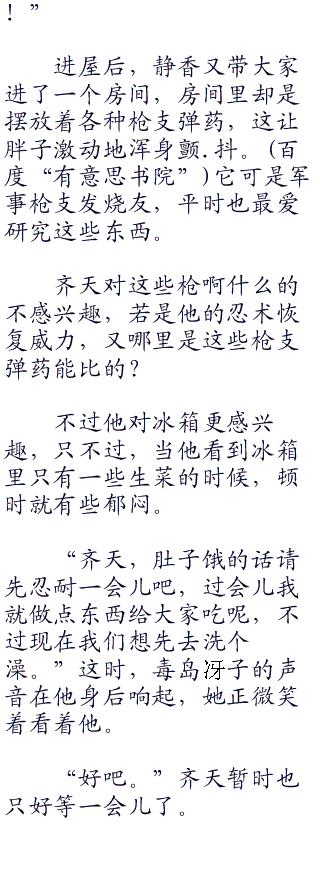 ！”
进屋后，静香又带大家
进了一个房间，房间里却是
摆放着各种枪支弹药，这让
胖子激动地浑身颤.抖。(百
度“有意思书院”)它可是军
事枪支发烧友，平时也最爱
研究这些东西。
齐天对这些枪啊什么的
不感兴趣，若是他的忍术恢
复威力，又哪里是这些枪支
弹药能比的？
不过他对冰箱更感兴
趣，只不过，当他看到冰箱
里只有一些生菜的时候，顿
时就有些郁闷。
“齐天，肚子饿的话请
先忍耐一会儿吧，过会儿我
就做点东西给大家吃呢，不
过现在我们想先去洗个
澡。”这时，毒岛冴子的声
音在他身后响起，她正微笑
着看着他。
“好吧。”齐天暂时也
只好等一会儿了。